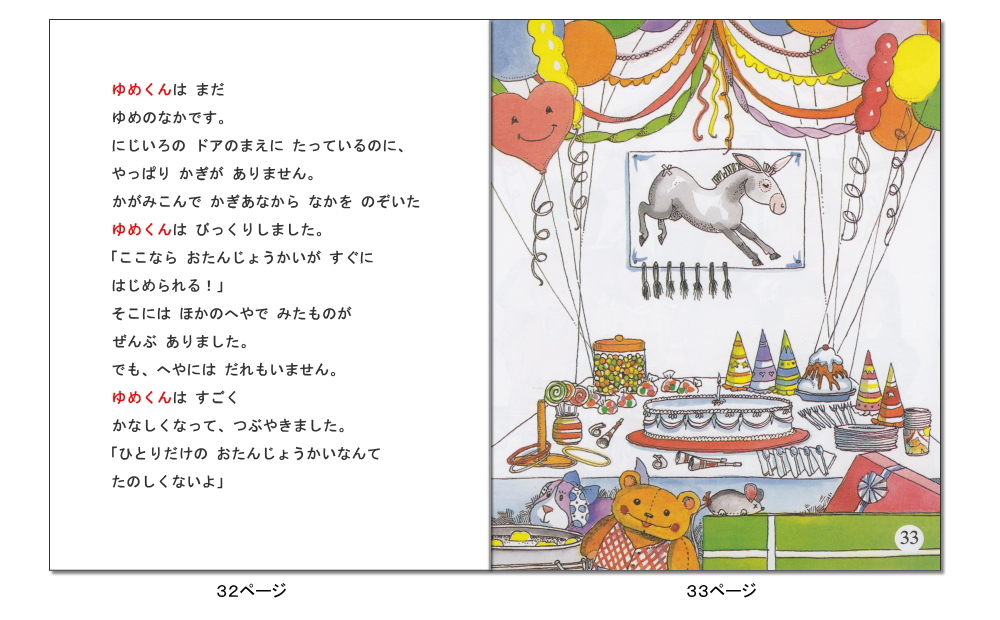 ゆめくんは まだ
ゆめのなかです。
にじいろの ドアのまえに たっているのに、
やっぱり かぎが ありません。
かがみこんで かぎあなから なかを のぞいた
ゆめくんは びっくりしました。
「ここなら おたんじょうかいが すぐに
はじめられる！」
そこには ほかのへやで みたものが
ぜんぶ ありました。
でも、へやには だれもいません。
ゆめくんは すごく
かなしくなって、つぶやきました。
「ひとりだけの おたんじょうかいなんて
たのしくないよ」
33
32ページ
33ページ